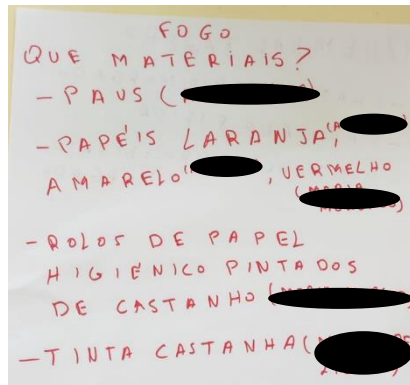 FOGO
QUE MATERIAIS?
- PAUS (
- PAPÉIS LARANJA,
AMARELO , VERMELHO
- ROLOS DE PAPEL
HIGIÉNICO PINTADOS
DE CASTANHO (
- TINTA CASTANHA (